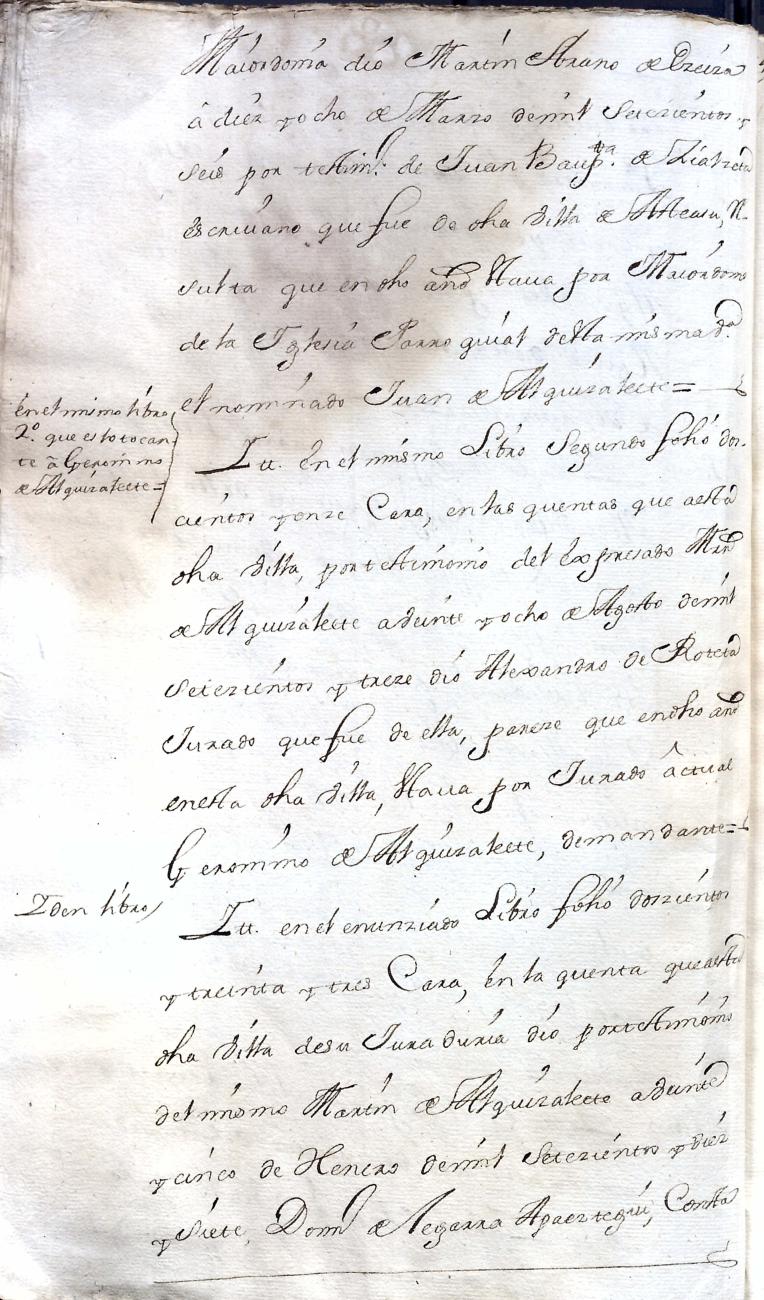 Maiordomia dio Martin Arano de Ezeiza
â diez y ocho de Marzo demil setezientos y
seis por testim.º de Juan Baup.ta de Lialzeta
escriuano que fue de dha villa de Ateaun, Re-
sulta que en dho año Hauia por Maiordomo
de la Iglesia Parroquial della misma d.ª
el nominado Juan de Alquizalete=
en el mismo libro
2º. que es lo tocan-
te â Geronimo
de Alquizalete=
Itt. en el mismo Libro Segundo folio dos-
cientos y onze Cara, en las quentas que aesta
dha villa, por testimonio del expresado Mrn
de Alquizalete a veinte y ocho de Agosto demil
setezientos y treze dio Alexandro de Roteta
Jurado que fue de ella, pareze que en dho año
en esta dha villa, Hauia por Jurado âctual
Geronimo de Alquizalete, demandante=
Iden libro
Itt. en el enunziado Libro folio doszientos
y treinta y tres Cara, en la quenta que aesta
dha villa desu Juraduria dio por testimonio
del mismo Martin de Alquizalete a veinte
y cinco de Henero demil setezientos y diez
y siete, Dom.º de Legarra Apaeztegui, Consta